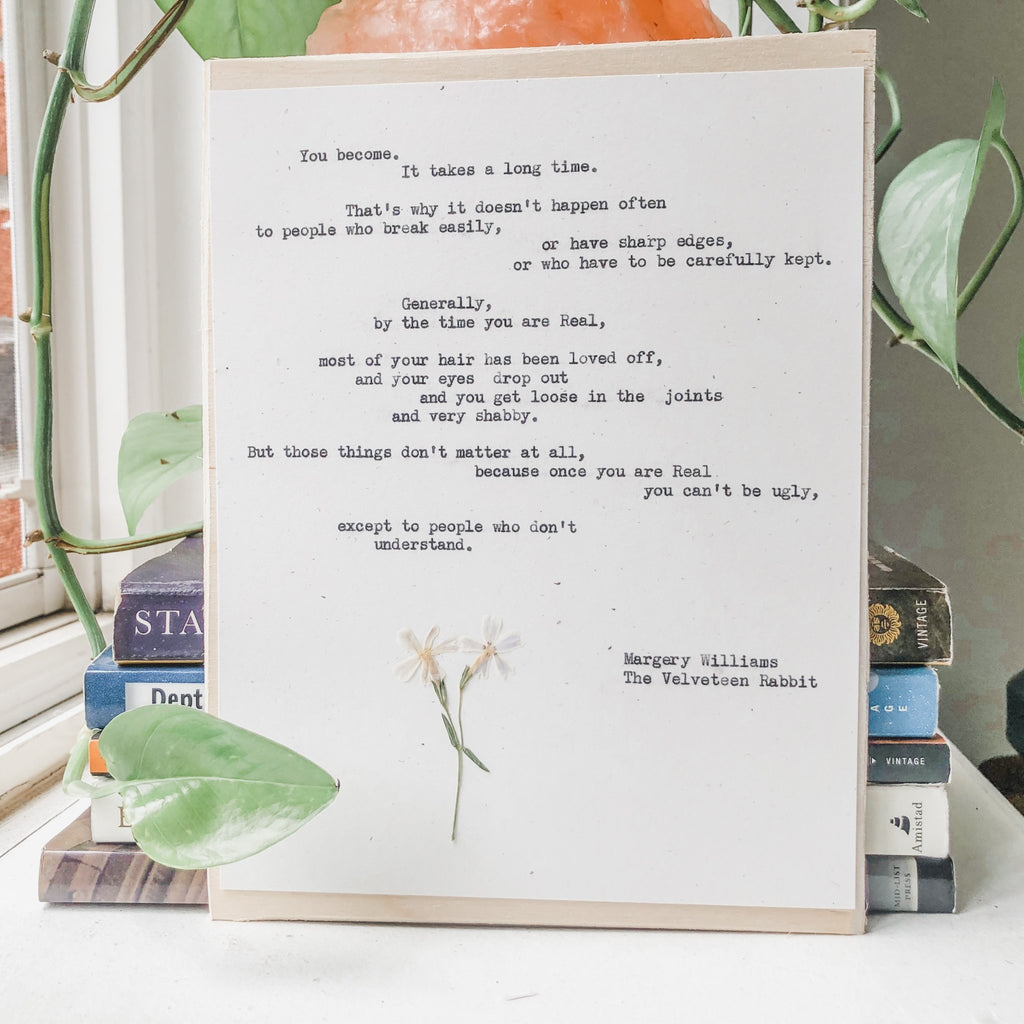 You become.
It takes a long time.
That's why it doesn't happen often
to people who break easily,
or have sharp edges,
or who have to be carefully kept.
Generally,
by the time you are Real,
most of your hair has been loved off,
and your eyes drop out
and you get loose in the joints
and very shabby.
But those things don't matter at all,
because once you are Real
you can't be ugly,
except to people who don't
understand.
Margery Williams
The Velveteen Rabbit
STA
Dept
VINTAGE
AGE
VINTAGE
Amistad
MID-LIST
PRESS